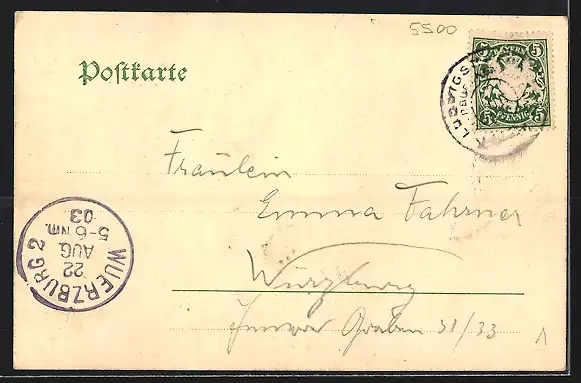 5500
Postkarte
BAYERN
5 5
5 PFENNIG 5
LUDWIGS
Fräulein
Emma Fahrner
Würzburg
Innerer Graben 31/33
WUERZBURG 2
22
AUG
5-6 NM.
03